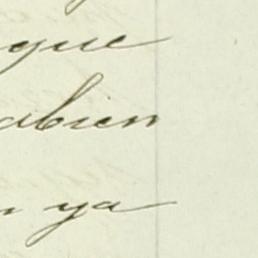 que
abien
ya